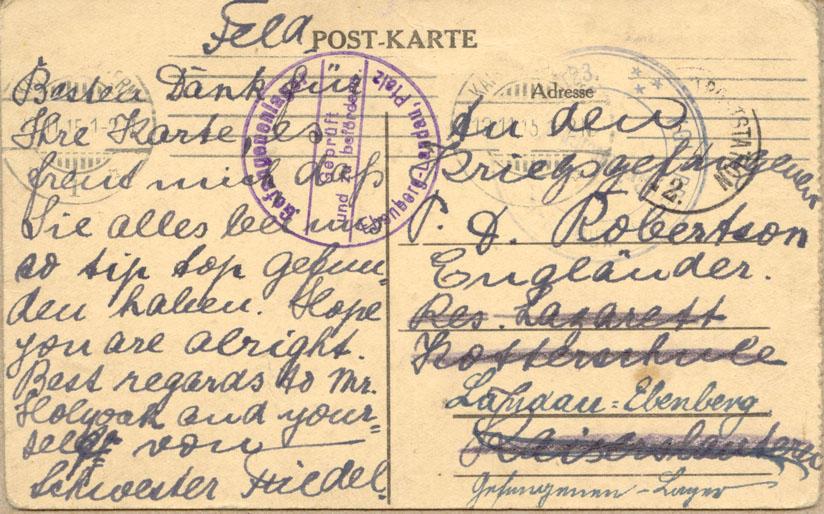 Feld
POST-KARTE
Besten Dank für
Ihre Karte, es
freut mich daß
Sie alles bei mir
so tip top gefun-
den haben. Hope
you are alright.
Best regards to Mr.
Holyoak and your-
self von
Schwester Friedel.
Adresse
An den
Kriegsgefangenen
P. D. Robertson
Engländer.
Res. Lazarett
Kotterschule
Landau-Ebenberg
Kaiserslautern
Gefangenen-Lager
Gefangenenlager
Geprüft
und zu befördern
Ebenberg-Landau, Pfalz
2.